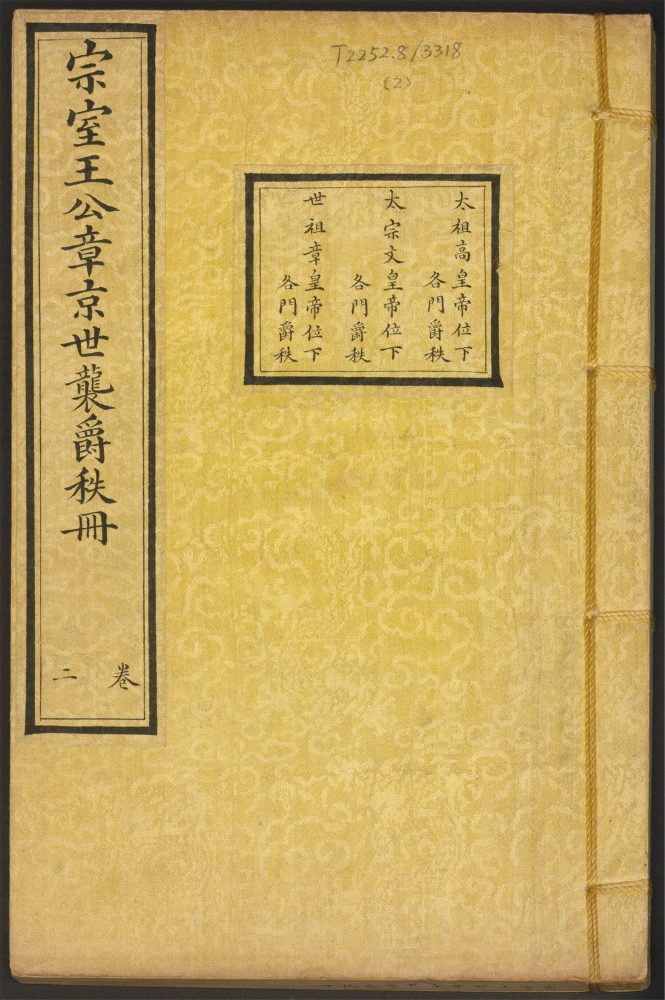 T2252.8/3318
(2)
太祖高皇帝位下
各門爵秩
太宗文皇帝位下
各門爵秩
世祖章皇帝位下
各門爵秩
宗室王公章京世襲爵秩冊
卷
二